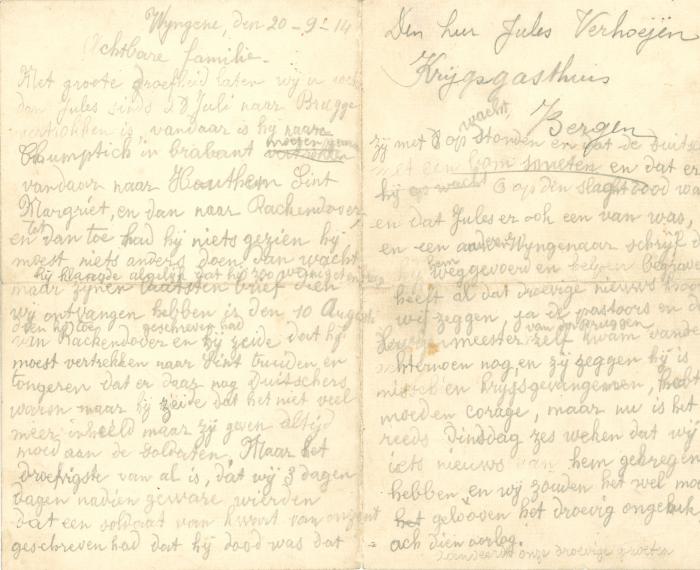 Wyngene, den 20-9-14
Achtbare familie.
Met groote droefheid laten wij u
dan Jules sinds 28 Juli naar Brugge
vertrokken is, vandaar is hij naar
Chumptich in brabant moeten gaan
vandaar naar Houthem Sint
Margriet, en dan naar Rackendover,
en dan toe had hij niets gezien hij
moest niets anders doen dan wacht
hij klaagde algelijk dat hij zoo
maar zijnen laatsten brief dien
wij ontvangen hebben is den 10 Augusti
dien hij geschreven had
van Rackendover en hij zeide dat hij
moest vertrekken naar Sint truiden en
tongeren dat er daar nog Duitschers
waren maar hij zeide dat het niet veel
meer inheeld maar zij geven altijd
moed aan de soldaten, Maar het
droefrigste van al is, dat wij 3 dagen
dagen nadien geware wierden
dat een soldaat van kwart van
geschreven had dat hij dood was dat
Den heer Jules Verhoeijen
Krijgsgasthuis
Bergen
zij met 6 op wacht stonden en dat de duits
met een bom smeten en dat er
6 op den slag dood wa
en dat Jules er ook een van was,
en een andere Wyngenaar schrijf d
hem weggevoerd en helpen begrave
heeft al dat droevige nieuws
wij zeggen ja de pastoors en de
van der Bruggen
meester zelf kwam van de
hternoen nog en zij zeggen hij is
missch en krijgsgevangenen, hebt
moed en corage, maar nu is het
reeds dinsdag zes weken dat wij
iets nieuws van hem gekregen
hebben en wij zouden het wel mo
het gelooven het droevig ongeluk
ach dien oorlog.
onze droevige groeten